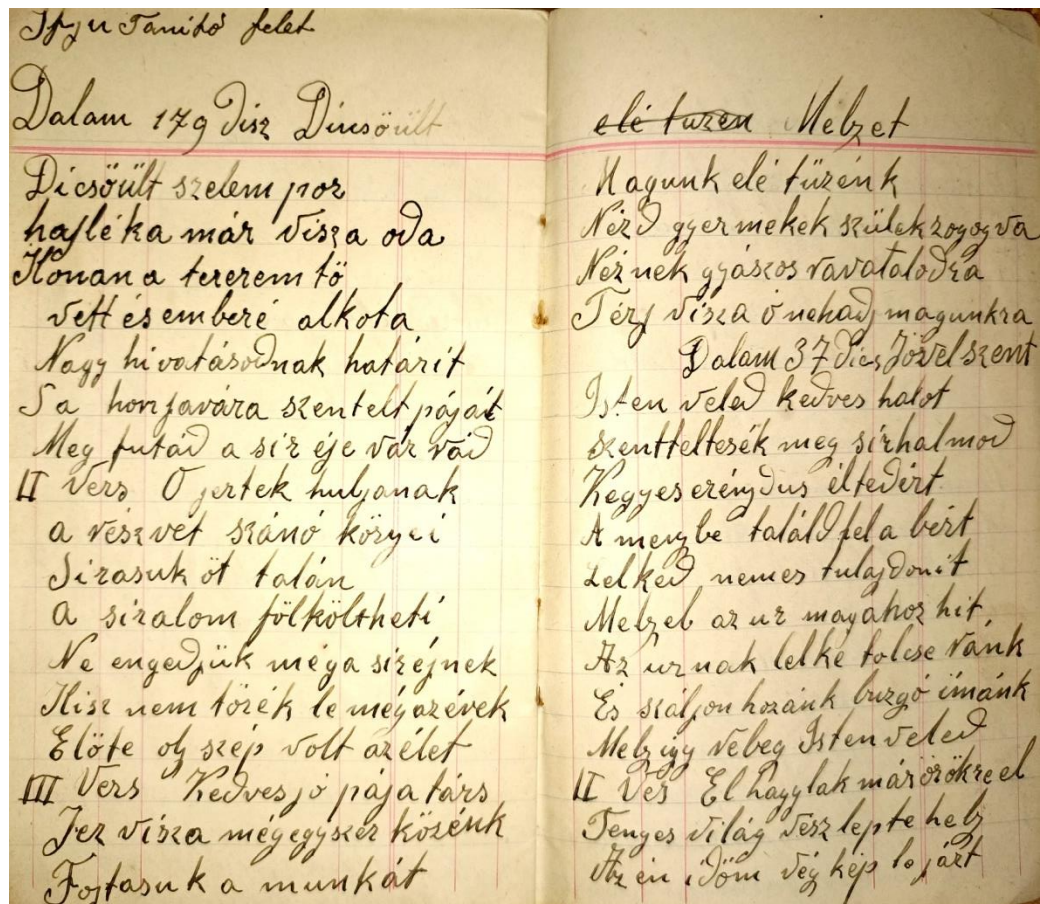 Ifju Tanitó felet
Dalam 179 Disz Dicsöült
Dicsöült szelem por
hajléka már visza oda
Honan a tererem tö
vett és emberé alkota
Nagy hivatásodnak határit
S a hon javára szentelt páját
Meg futád a sir éje vár rád
II Vers O jertek huljanak
a részvét szánó könyei
Sirasuk öt talán
a siralom fölköltheti
Ne engedjük még a siréjnek
Hisz nem törék le még azévek
Elöte oly szép volt az élet
III Vers Kedves jó pája társ
Jer visza mégegyszer közénk
Fojtasuk a munkát
elé tuzen Melyet
Magunk elé tüzénk
Nézd gyermekek szülek zogogva
Néznek gyászos ravatalodra
Térj visza ó nehadj magunkra
Dalam 37 Dics Jövel szent
Isten veled kedves halot
szentteltesék meg sirhalmod
Kegyes erénydus éltedért
A menybe találd fel a bért
Lelked nemes tulajdonit
Melyel az ur magához hit
Az urnak lelke tolcse ránk
És száljon hozánk buzgó imánk
Mely igy rebeg Isten veled
II Ves El hagylak már örökre el
Fenyes világ vész lepte hely
Az én idöm vég kép lejárt